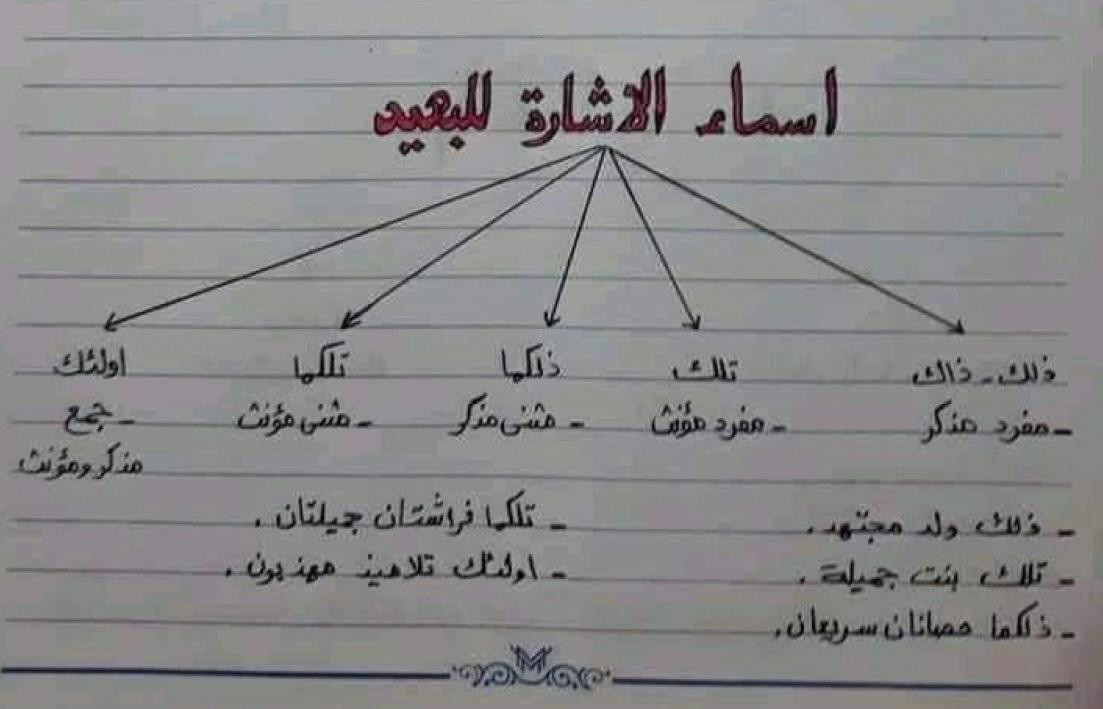 اسماء الاشارة للبعيد
ذلك - ذاك تلك ذلكما تلكما اولئك
- مفرد مذكر - مفرد مؤنث - مثنى مذكر - مثنى مؤنث - جمع
مذكر ومؤنث
- ذلك ولد مجتهد. - تلكما فراشتان جميلتان.
- تلك بنت جميلة. - اولئك تلاميذ مهذبون.
- ذلكما حصانان سريعان.